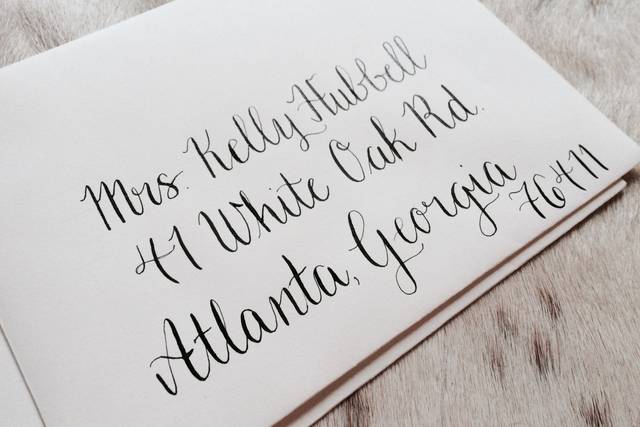 Mrs. Kelly Hubbell
41 White Oak Rd.
Atlanta, Georgia
76411